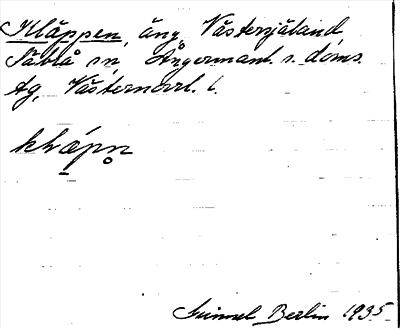 Kläppen, äng, Västersjäland
Säbrå sn, Ångermanl. s. doms.
tg, Västernorrl. l.
klæ̀pn̥
Gunnel Berlin 1935